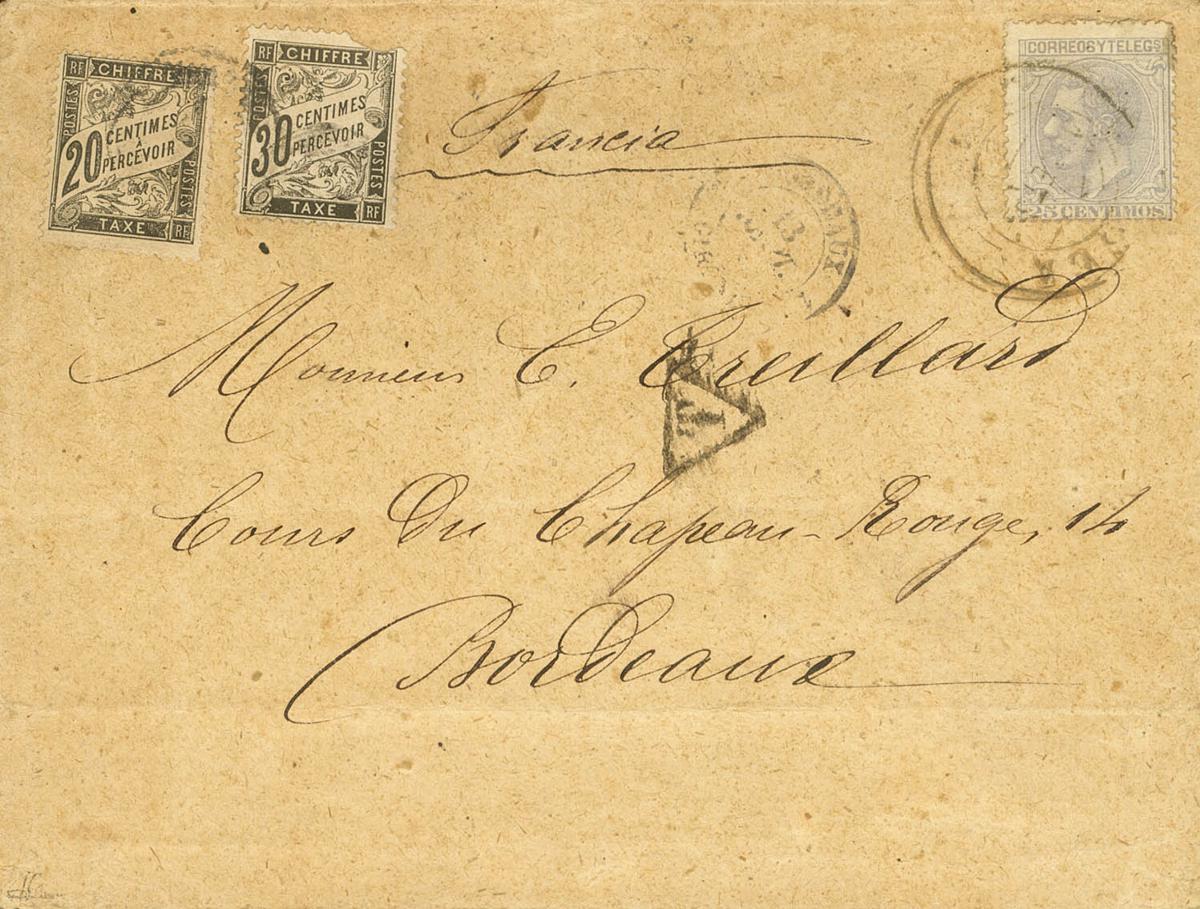 RF CHIFFRE
POSTES
20 CENTIMES
À
PERCEVOIR
POSTES
TAXE RF
RF CHIFFRE
POSTES
30 CENTIMES
À
PERCEVOIR
POSTES
TAXE RF
CORREOS Y TELEGS
25 CENTIMOS
Francia
13
T
Monsieur E. Treillard
Cours Du Chapeau-Rouge, 14
Bordeaux